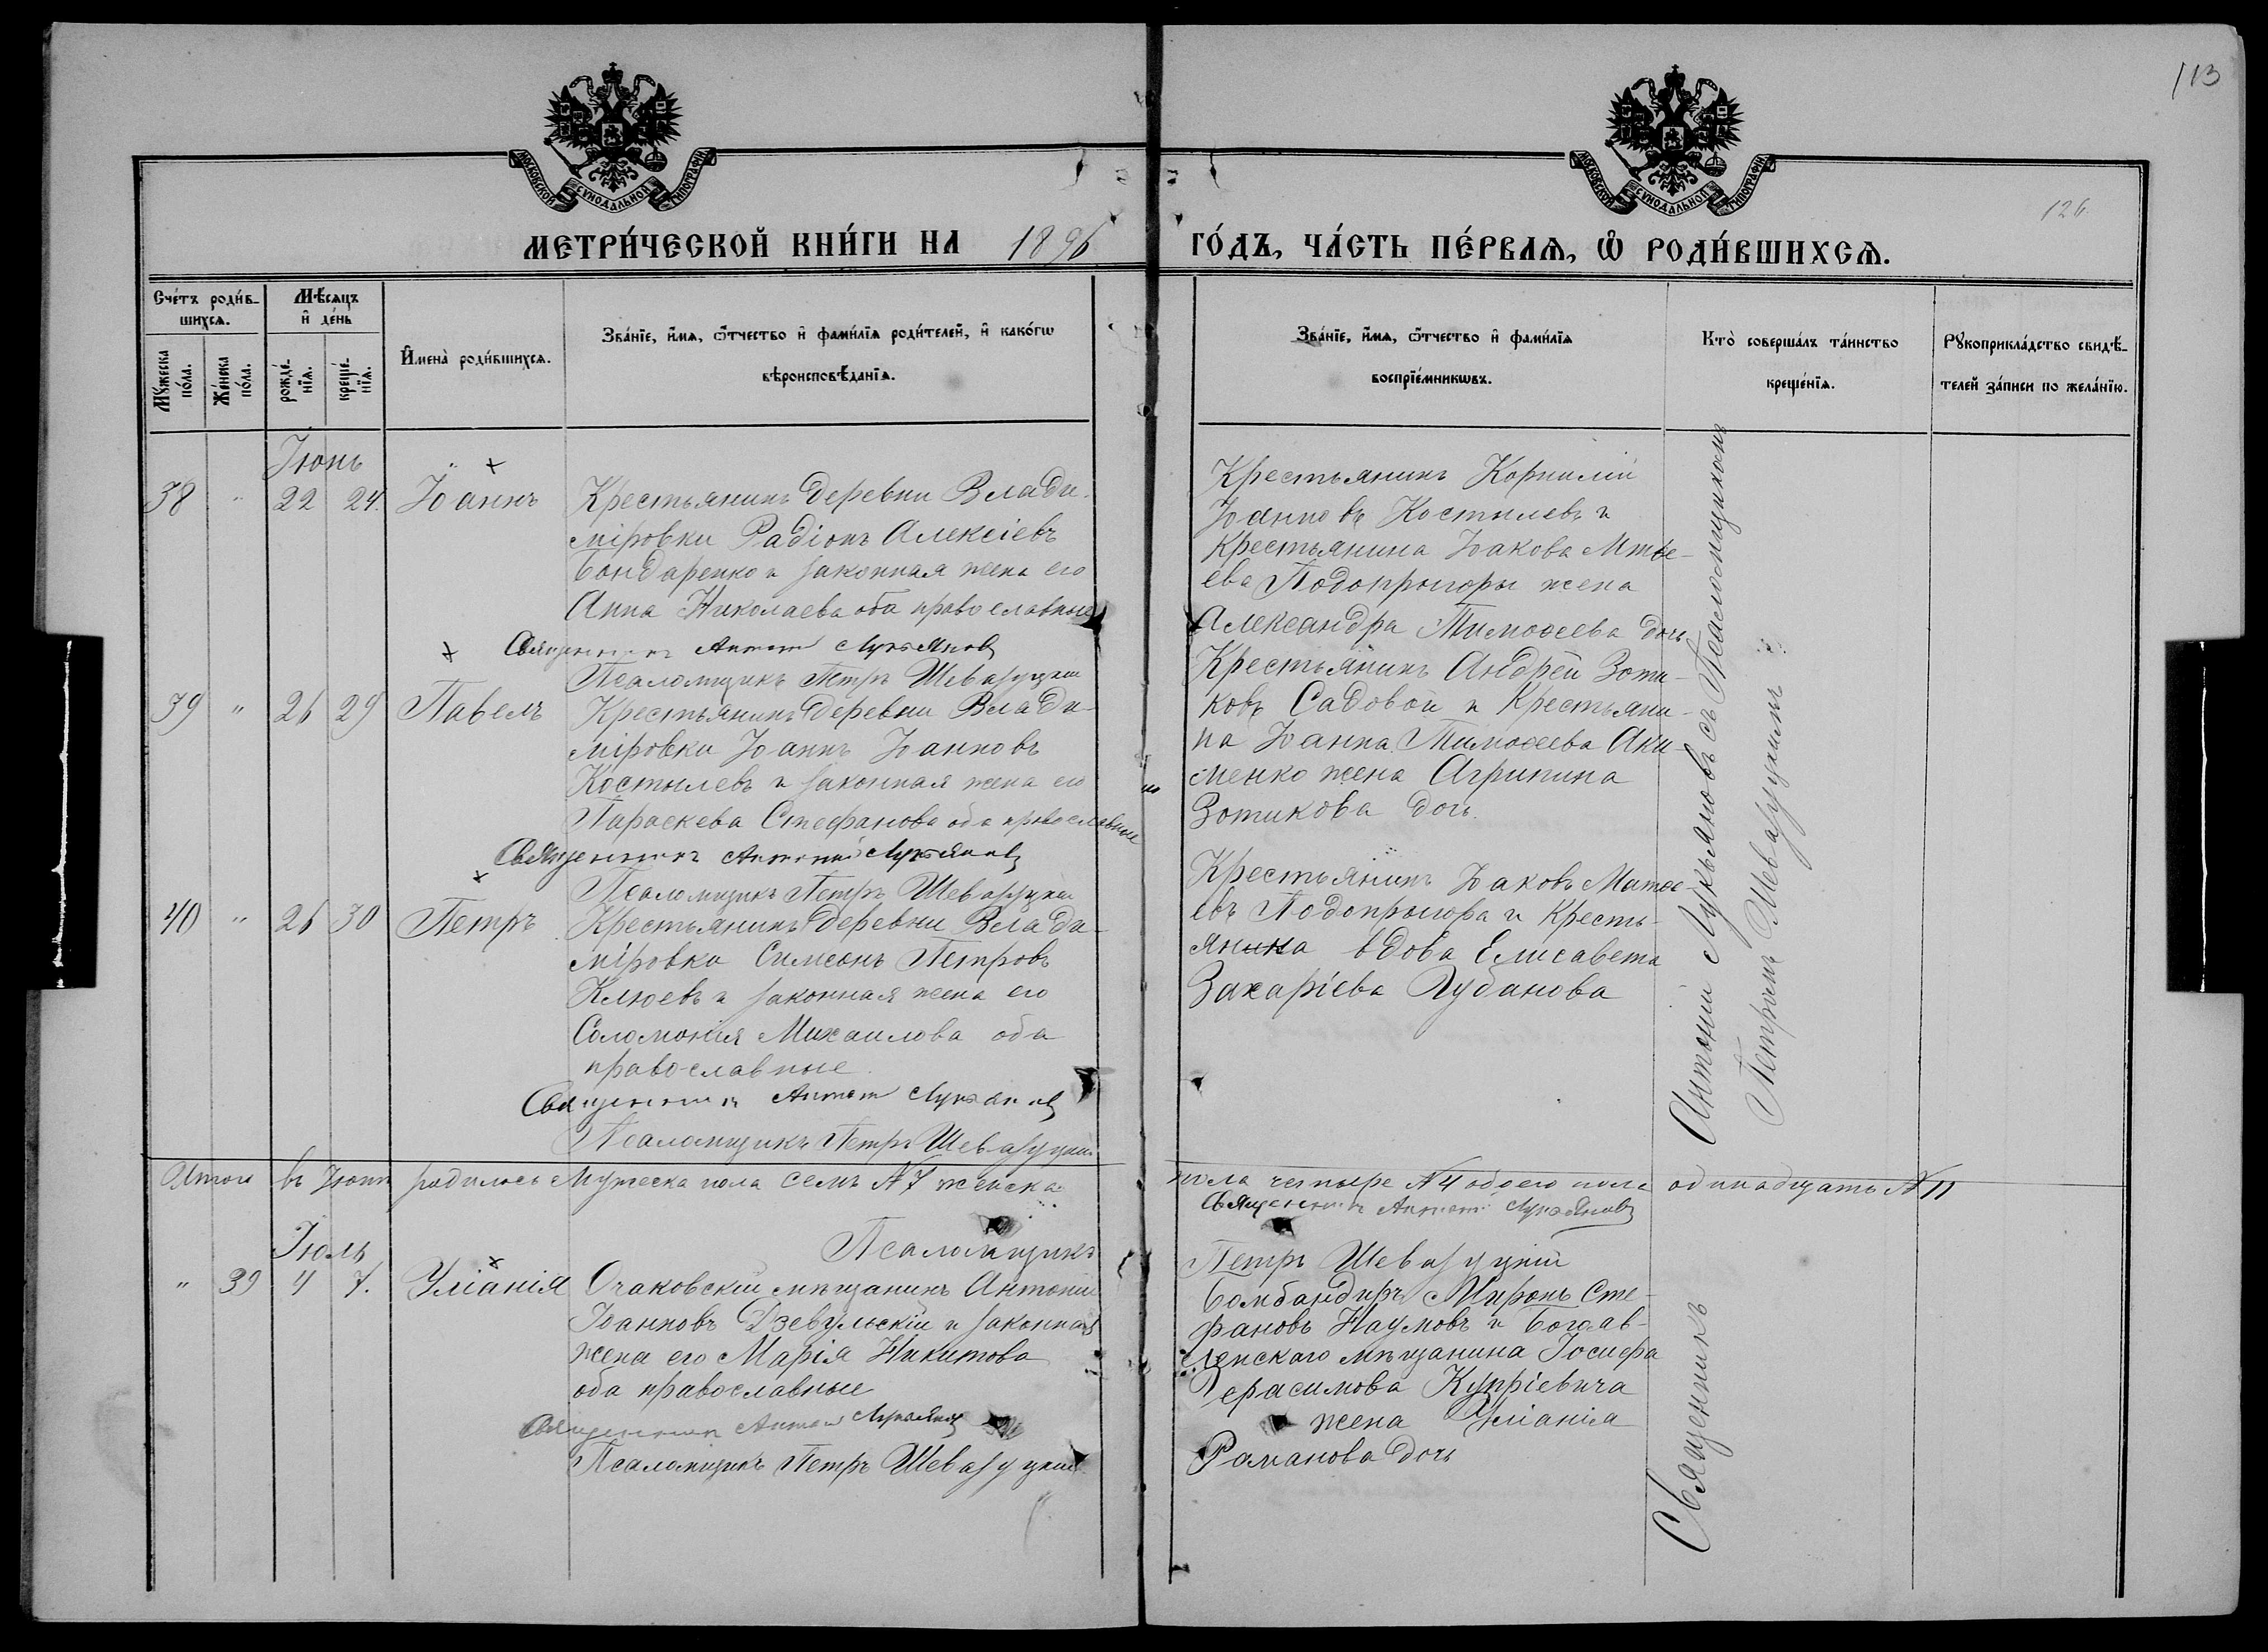 113
126.
МОСКОВСКОЙ СѴНОДАЛЬНОЙ ТИПОГРАФІИ
МОСКОВСКОЙ СѴНОДАЛЬНОЙ ТИПОГРАФІИ
МЕТРИ́ЧЕСКОЙ КНИ́ГИ НА 1896 ГО́ДЪ, ЧА́СТЬ ПЕ́РВАѦ, Ѡ҆ РОДИ́ВШИХСѦ.
Сче́тъ роди́в-
шихсѧ.
Мѣ́сѧцъ
и҆ де́нь
Мꙋ́жеска
по́ла.
Же́нска
по́ла.
рожде́-
нїѧ.
креще́-
нїѧ.
И҆мена̀ роди́вшихсѧ.
Зва́нїе, и҆́мѧ, ѻ҆́тчество и҆ фами́лїѧ роди́телей, и҆ како́гѡ
вѣроисповѣ́данїѧ.
Зва́нїе, и҆́мѧ, ѻ҆́тчество и҆ фами́лїѧ
воспрїе́мникѡвъ.
Кто̀ соверша́лъ та́инство
креще́нїѧ.
Рꙋкоприкла́дство свидѣ́-
телей за́писи по жела́нїю.
Іюнь
38 " 22 24. Іоаннъ
Крестьянинъ деревни Влади-
міровки Радіонъ Алексіевъ
Бондаренко и законная жена его
Анна Николаева оба православные
Священникъ Антоній Лукьяновъ
Псаломщикъ Петръ Шевазуцкій
Крестьянинъ Корнилій
Іоанновъ Костылевъ и
Крестьянина Іакова Матѳе-
ева Подопригоры жена
Александра Тимоѳеева дочь
39 " 26 29 Павелъ
Крестьянинъ деревни Влади-
міровки Іоаннъ Іоанновъ
Костылевъ и законная жена его
Параскева Стефанова оба православные
Священникъ Антоній Лукьяновъ
Псаломщикъ Петръ Шевазуцкій
Крестьянинъ Андрей Зоти-
ковъ Садовой и Крестьяни-
на Іоанна Тимоѳеева Аки-
менко жена Агрипина
Зотикова дочь.
40 " 26 30 Петръ
Крестьянинъ деревни Влади-
міровки Симеонъ Петровъ
Клюевъ и законная жена его
Соломонія Михаилова оба
православные.
Священникъ Антоній Лукьяновъ
Псаломщикъ Петръ Шевазуцкій
Крестьянинъ Іаковъ Матѳе-
евъ Подопригора и Кресть-
янина вдова Елисавета
Захаріева Губанова
Итого въ Іюнѣ родилось Мужеска пола семь № 7 женска
пола четыре № 4 обоего пола одинадцать № 11
Священникъ Антоній Лукьяновъ
Псаломщикъ
Петръ Шевазуцкій
Іюль
" 39 4 7. Уліанія
Очаковскій мѣщанинъ Антоній
Іоанновъ Дзевульскій и законная
жена его Марія Никитова
оба православные
Священникъ Антоній Лукьяновъ
Псаломщикъ Петръ Шевазуцкій
Бомбандиръ Миронъ Сте-
фановъ Наумовъ и Богояв-
ленскаго мѣщанина Іосифа
Герасимова Купріевича
жена Уліанія
Романова дочь
Священникъ Антоній Лукьяновъ съ Псаломщикомъ
Петромъ Шевазуцкимъ